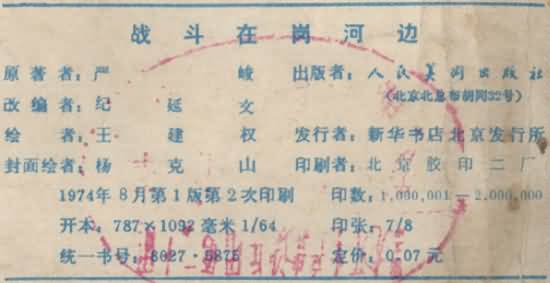 战斗在岗河边
原著者：严峻 出版者：人民美术出版社
（北京北总布胡同32号）
改编者：纪延文
绘者：王建权 发行者：新华书店北京发行所
封面绘者：杨克山 印刷者：北京胶印二厂
1974年8月第1版第2次印刷 印数：1,000,001—2,000,000
开本：787×1092毫米1/64 印张：7/8
统一书号：8027·5875 定价：0.07元